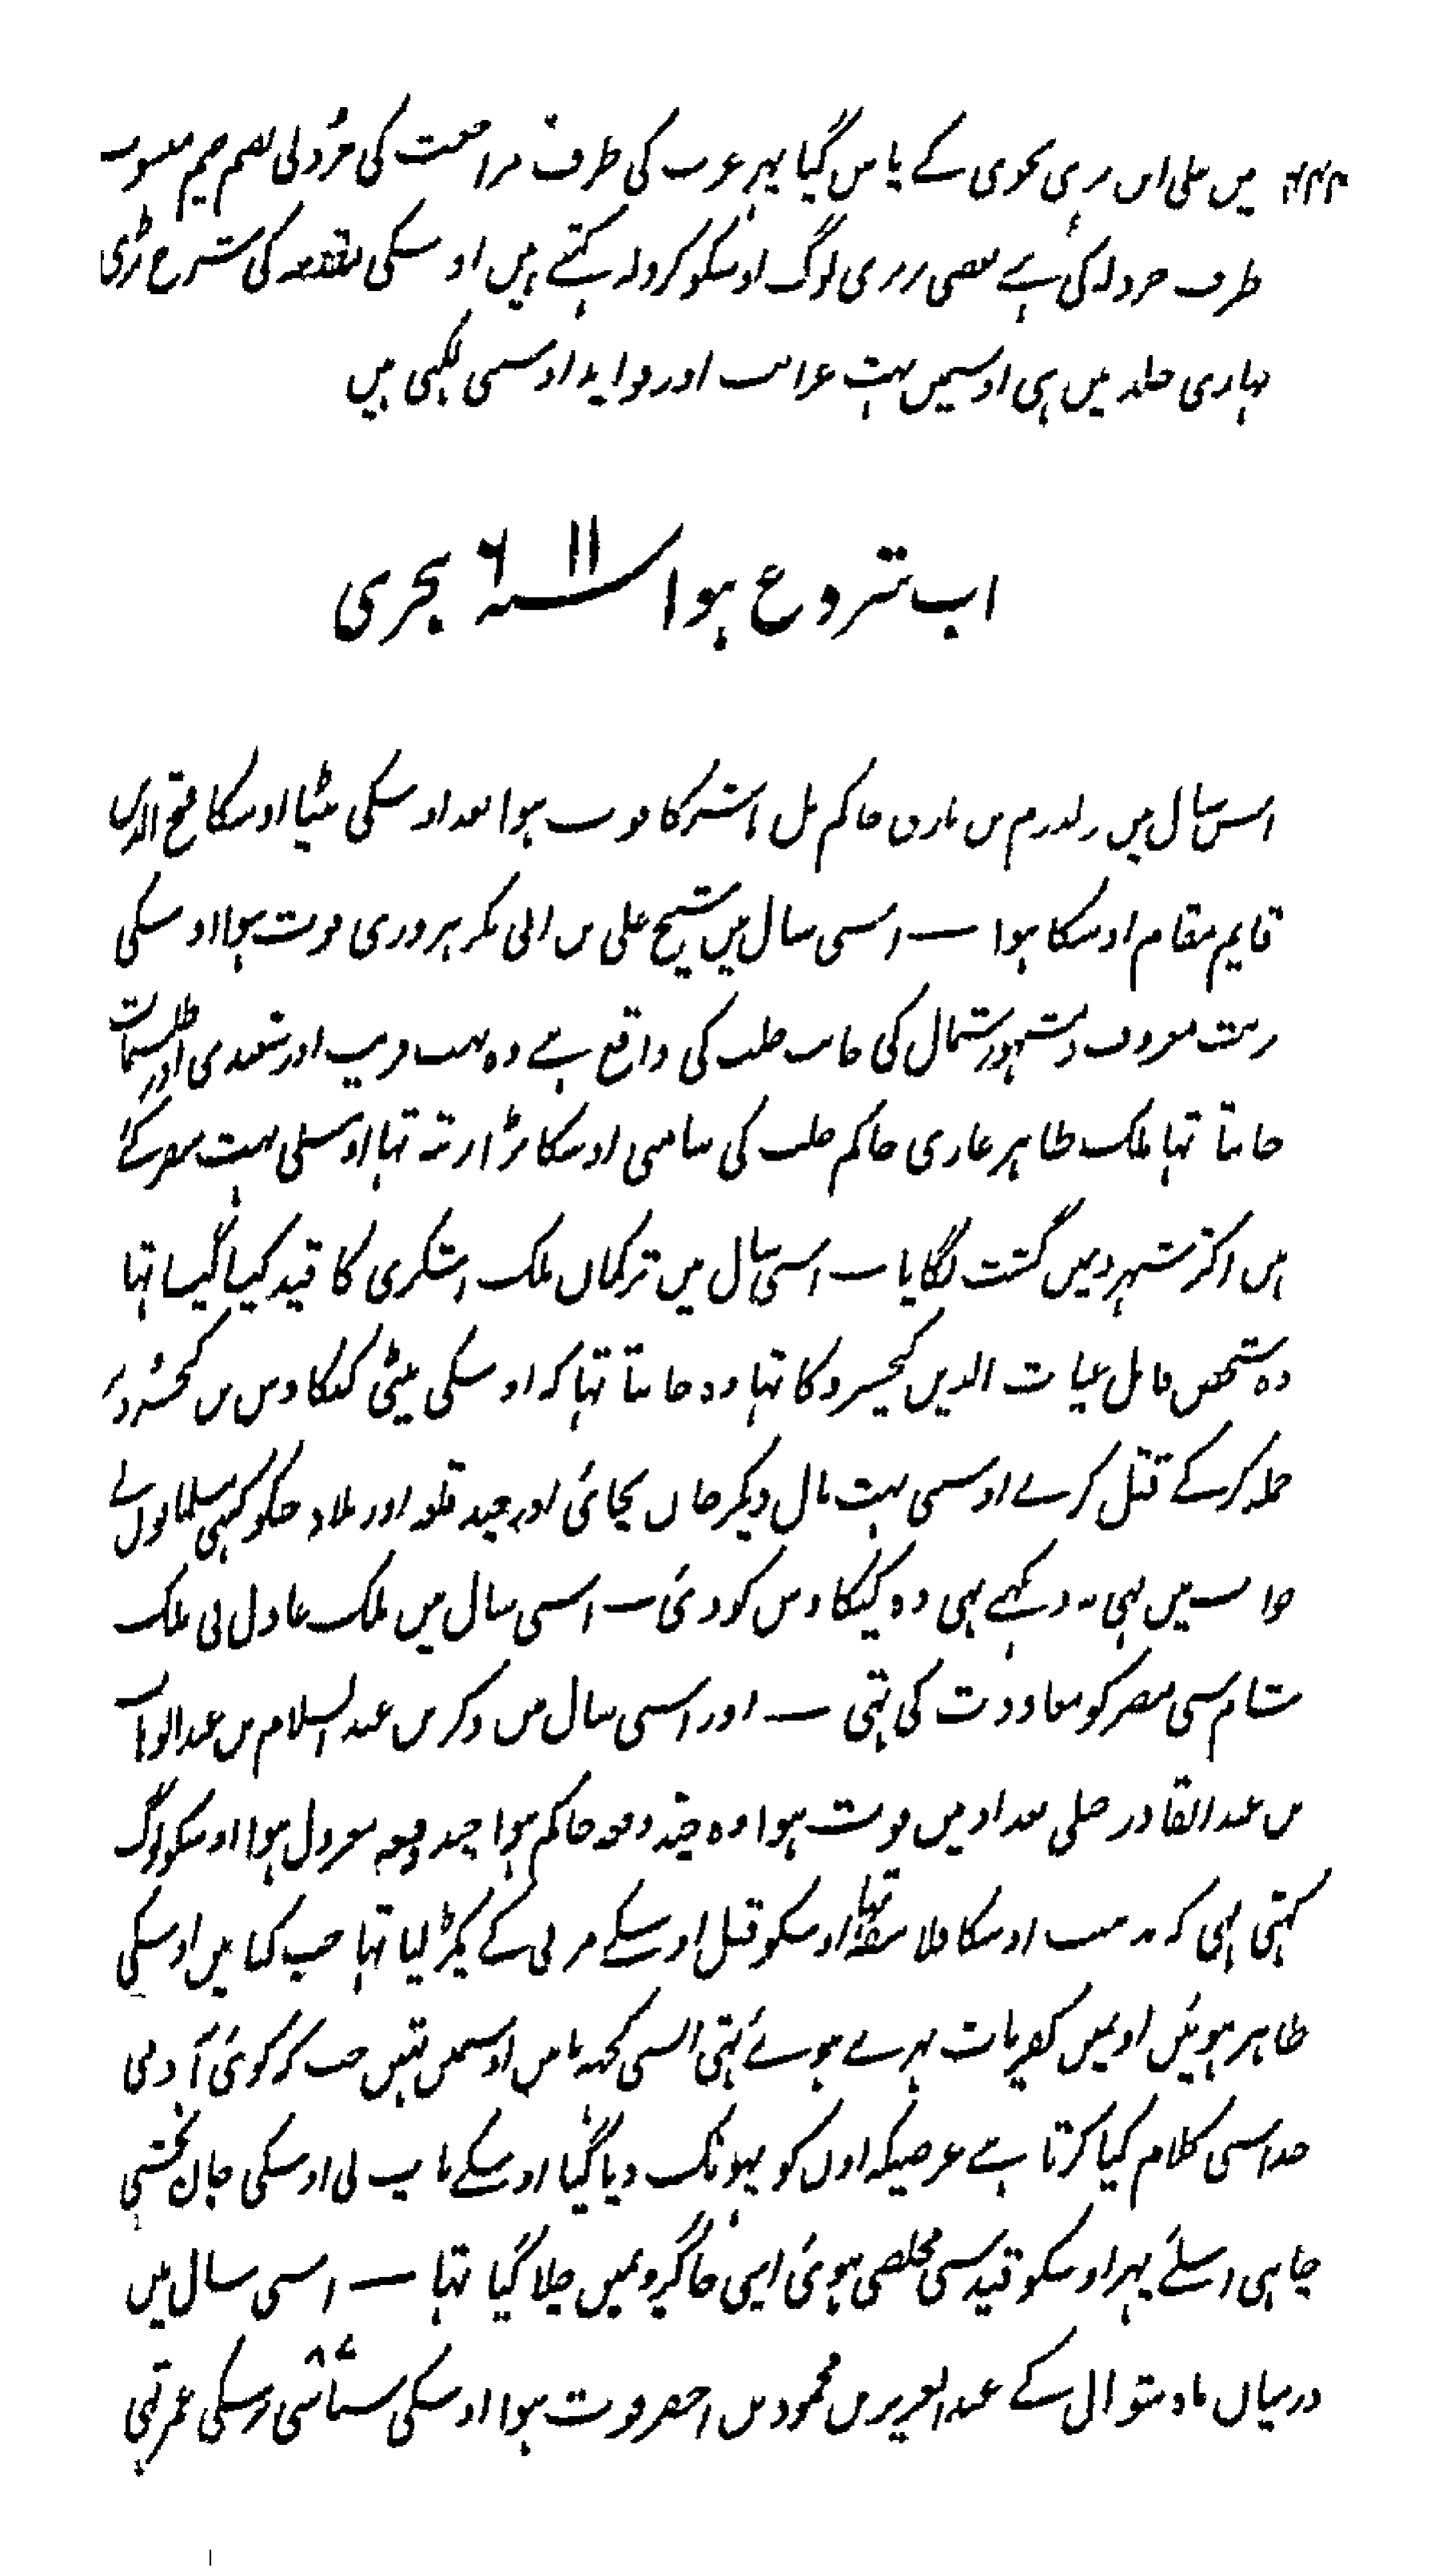 میں علی ابن بری نحوی کے پاس گیا پہر عرب کی طرف مراجعت کی جزولی بضم جیم منسوب
طرف جزولہ کی ہے بعضی بربری لوگ اوسکو کزولہ کہتے ہیں اوسکی مقدمہ کی شرح بڑی
بہاری جلد میں ہی اوسمیں بہت غرائب اور فواید اوسمی لکہی ہیں
اب شروع ہوا سنہ ۶۱۱ ہجری
اس سال میں دلدرم بن یاروق حاکم تل باشر کا فوت ہوا بعد اوسکی بیٹا اوسکا فتح الدین
قایم مقام اوسکا ہوا — اسی سال میں شیخ علی بن ابی بکر ہروی فوت ہوا اوسکی
تربت معروف و مشہور شمال کی جانب حلب کی واقع ہے وہ بہت فریب اور شعبدی اور طلسمات
جانتا تہا ملک ظاہر غازی حاکم حلب کی سامنی اوسکا بڑا رتبہ تہا اوسنی بہت سفر کئے
ہیں اکثر شہرونمیں گشت لگایا — اسی سال میں ترکمان ملک اشکری کا قید کیا گیا تہا
وہ شخص قاتل غیاث الدین کیخسرو کا تہا وہ جانتا تہا کہ اوسکی بیٹی کیکاوس بن کیخسرو
حملہ کرکے قتل کرے اوسمی بہت مال دیکر جان بچائی اور چند قلعہ اور بلاد جنکو کبہی مسلمانوں نے
خواب میں بہی نہ دیکہے تہی وہ کیکاوس کو دئی — اسی سال میں ملک عادل نی ملک
شام سی مصر کو معاودت کی تہی — اور اسی سال میں دکر بن عبد السلام بن عبد الوہاب
بن عبد القادر جیلی بغداد میں فوت ہوا وہ چند دفعہ حاکم ہوا چند دفعہ معزول ہوا اوسکو لوگ
کہتی ہیں کہ مذہب اوسکا فلاسفہ تہا اوسکو قبل اوسکے مرنی کے پکڑ لیا تہا جب کتابیں اوسکی
ظاہر ہوئیں اونمیں کفریات بہرے ہوئے تہی ایسی کچہہ باتیں اوسمیں تہیں جب کہ کوئی آدمی
خدا سی کلام کیا کرتا ہے غرضیکہ اون کو پہونک دیا گیا اوسکے باپ نی اوسکی جان بخشی
چاہی اسلئے پہر اوسکو قید سی مخلصی ہوئی اپنی جاگیرونمیں چلا گیا تہا — اسی سال میں
درمیان ماہ شوال کے عبد العزیز بن محمود بن اخضر فوت ہوا اوسکی ستاسی ۸۷ برسکی عمر تہی